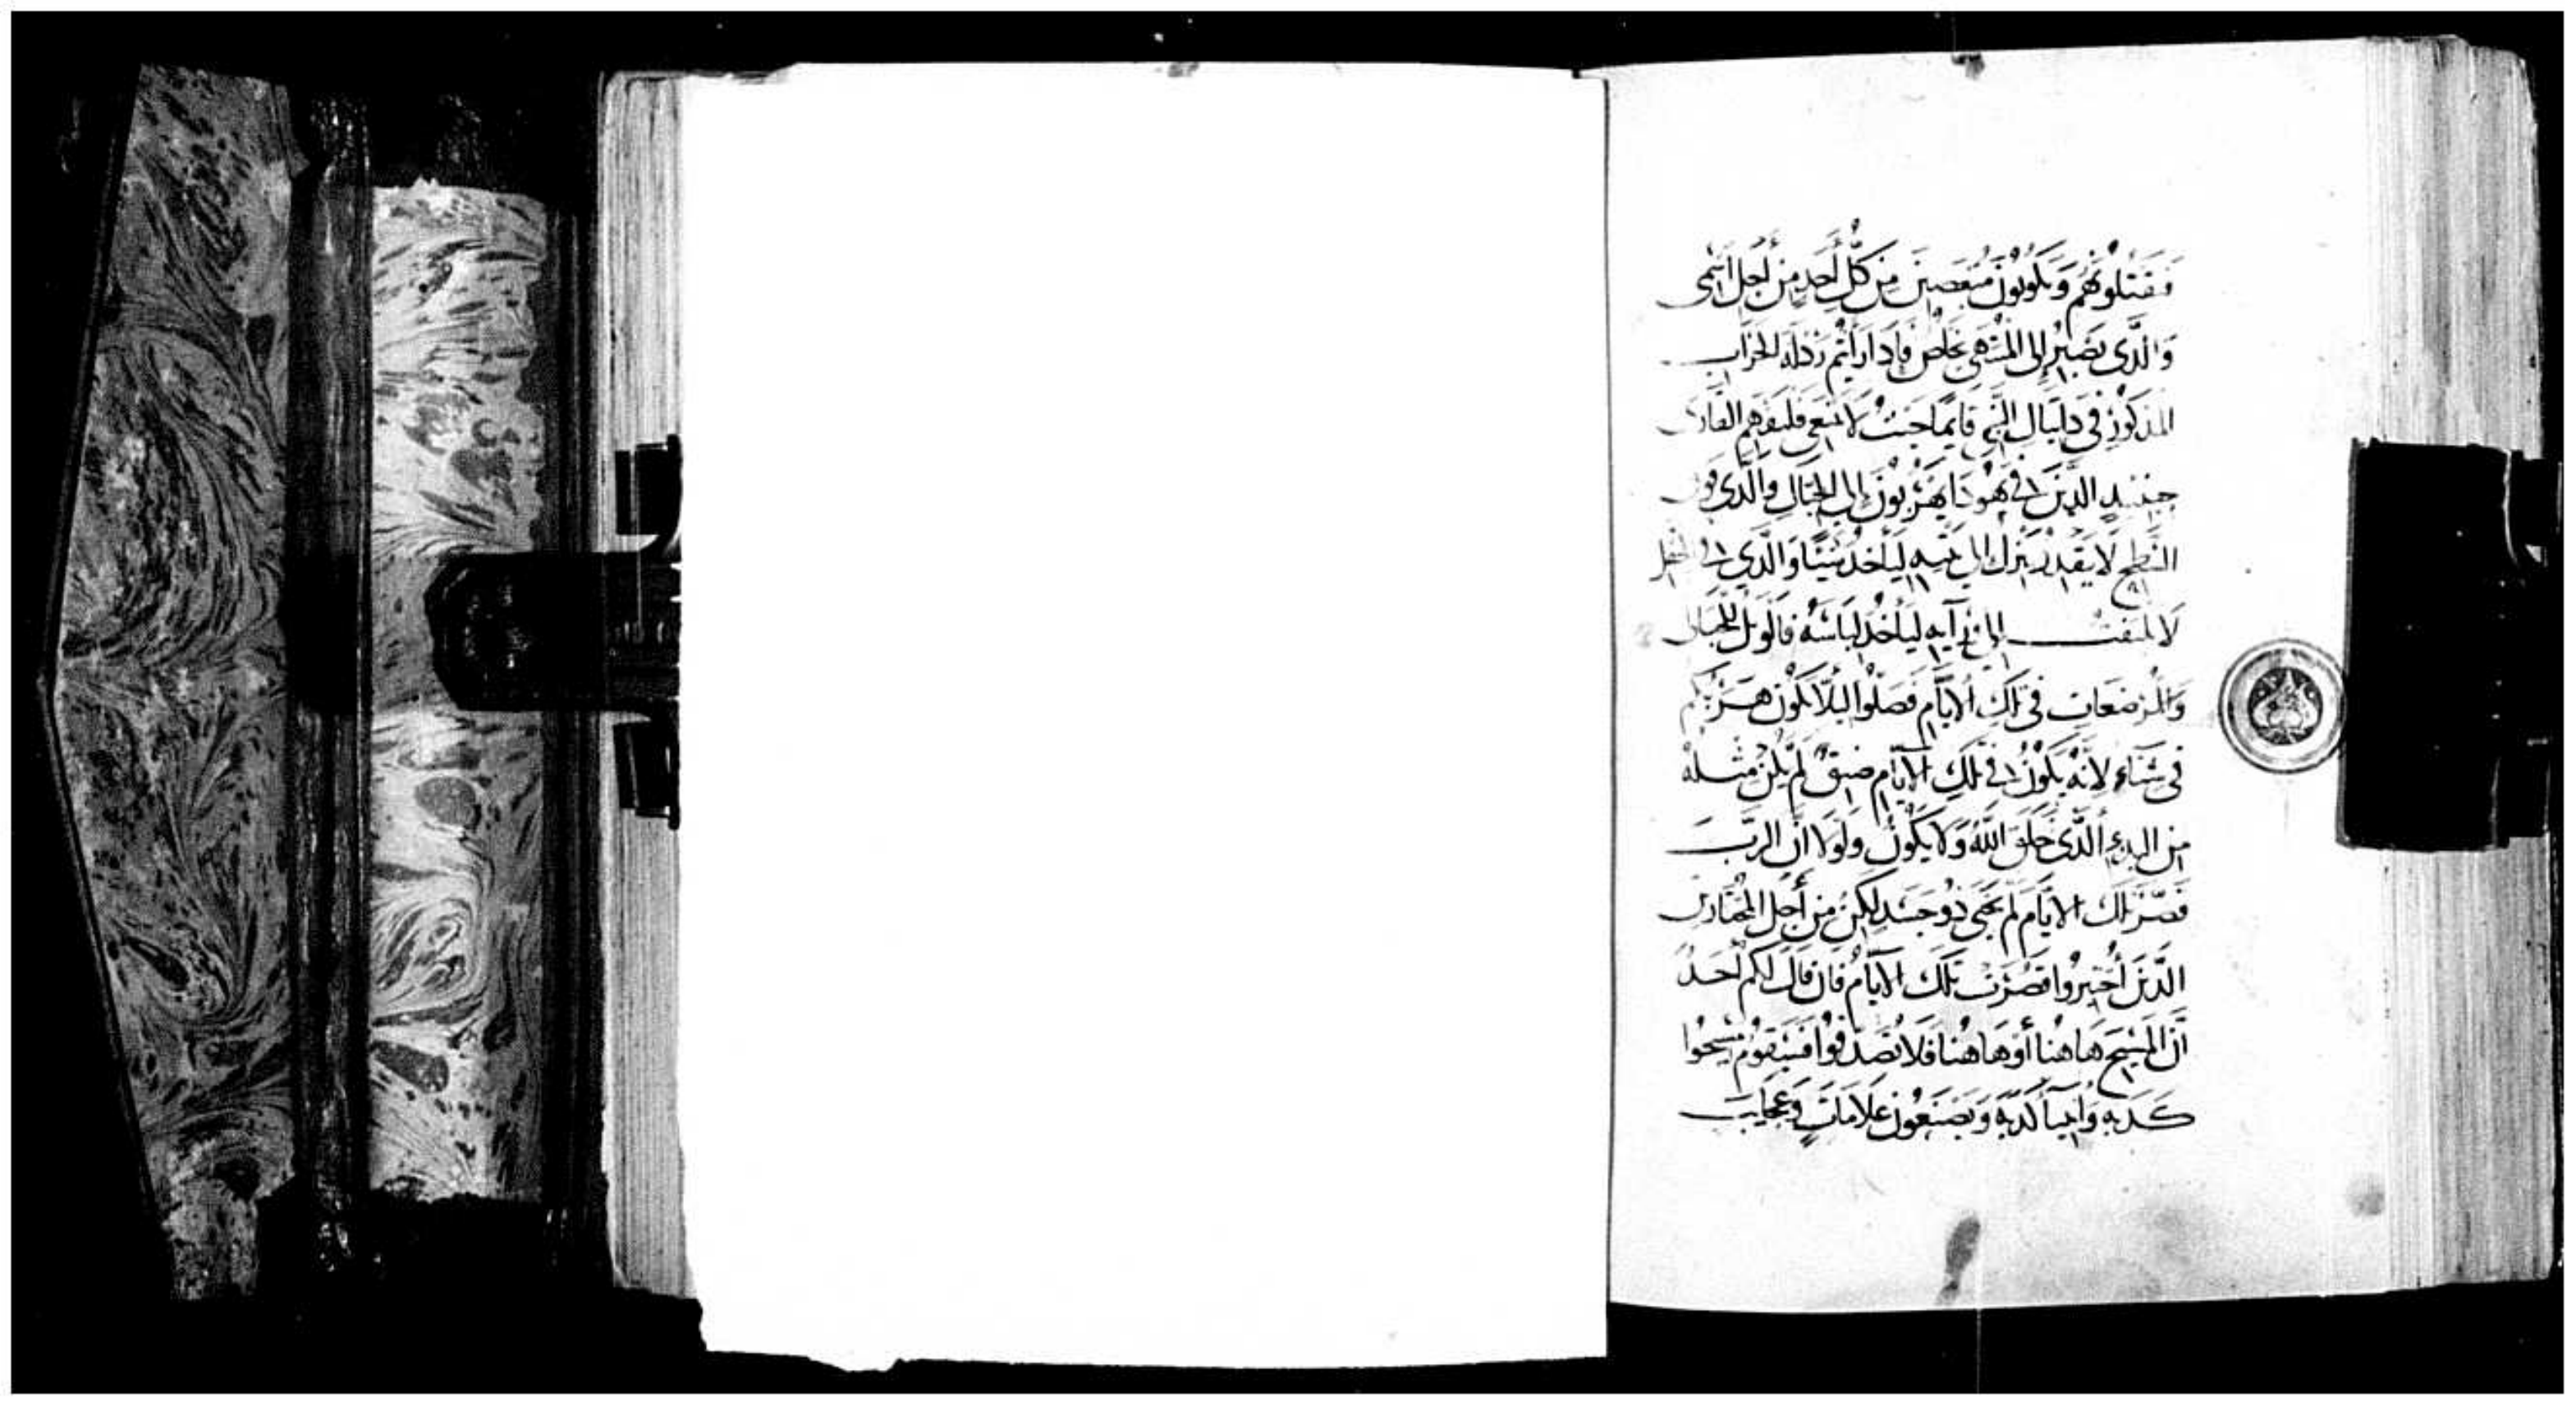 فَيَقتُلُونَهُم وَيَكُونُونَ مُبغَضِينَ مِن كُلِّ أَحَدٍ مِن أَجلِ اسمِى
وَالَّذى يَصبِرُ إِلى المُنتَهى يَخلُص فَإِدا رَأَيتُم رَذلَة الخَرَاب
المَذكُورَ فى دانيال النَّبى قايمًا حَيثُ لا يَنبَغى فَليَفهَم القَارى
حينَئِدٍ الَّذينَ فى يَهُودَا يَهرُبُونَ إِلى الجِبَالِ وَالَّذى فوق
السَّطح لَا يَقدِر يَنزِل إِلى بَيتِهِ لِيَأخُدَ شَيئًا وَالَّذي فى الحقل
لَا يَلتَفِت إِلى وَرَآيِهِ لِيَأخُدَ لِبَاسَهُ فَالوَيلُ لِلحَبَالى
وَالمُرضِعَاتِ فى تِلكَ الأَيَّامِ فَصَلُّوا لِيَلَّا يَكُون هَرَبُكُم
فى شِتَآءِ لِأَنَّهُ يَكُونُ فى تِلكَ الأَيَّام ضيقٌ لَم يَكُن مِثلُهُ
مِن البَدءِ الَّذى خَلَقَ اللَّهُ وَلَا يَكُون وَلَولَا أَنَّ الرَّبَّ
قَصَّرَ تِلكَ الأَيَّام لَم يَحيى ذُو جَسَدٍ لَكِن مِن أَجلِ المُختَارين
الَّذينَ أُختيرُوا قَصُرَت تِلكَ الأَيَّامُ فَإِن قَالَ لَكُم أَحَدٌ
أَنَّ المَسيحَ هَاهُنا أَو هَاهُنا فَلَا تُصَدِّقُوا فَسَيَقُومُ مَسيحُوا
كَدَبَه وَأَنبيَآ كَدَبَه وَيَصنَعُونَ عَلَامَاتٍ وَعَجَايِبَ